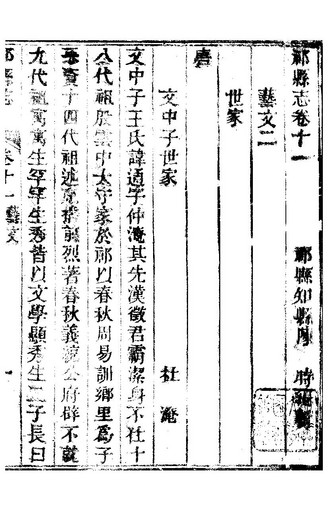 祁縣志卷十一 祁縣知縣陳 時
藝文二
世家
唐
文中子世家 杜淹
文中子王氏諱通字仲淹其先漢徵君霸潔身不仕十
八代祖殷雲中太守家於祁以春秋周易訓鄉里為子
孫資十四代祖述克播前烈著春秋義統公府辟不就
九代祖寓寓生罕罕生秀皆以文學顯秀生二子長曰
祁縣志 卷十一 藝文 一